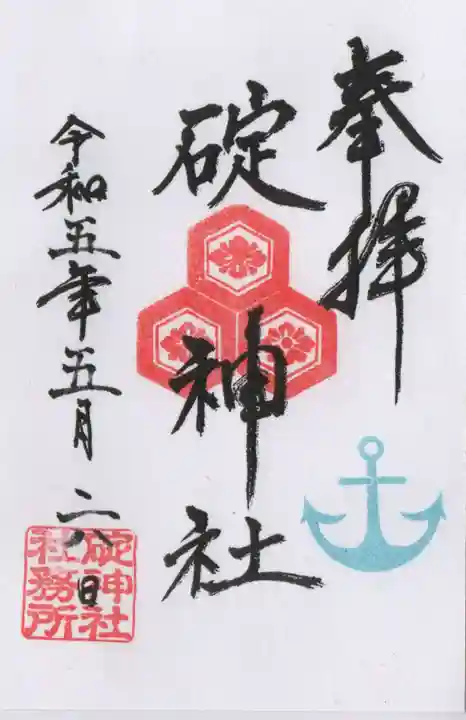 奉拝
碇神社
令和五年五月二八日
碇神社
社務所